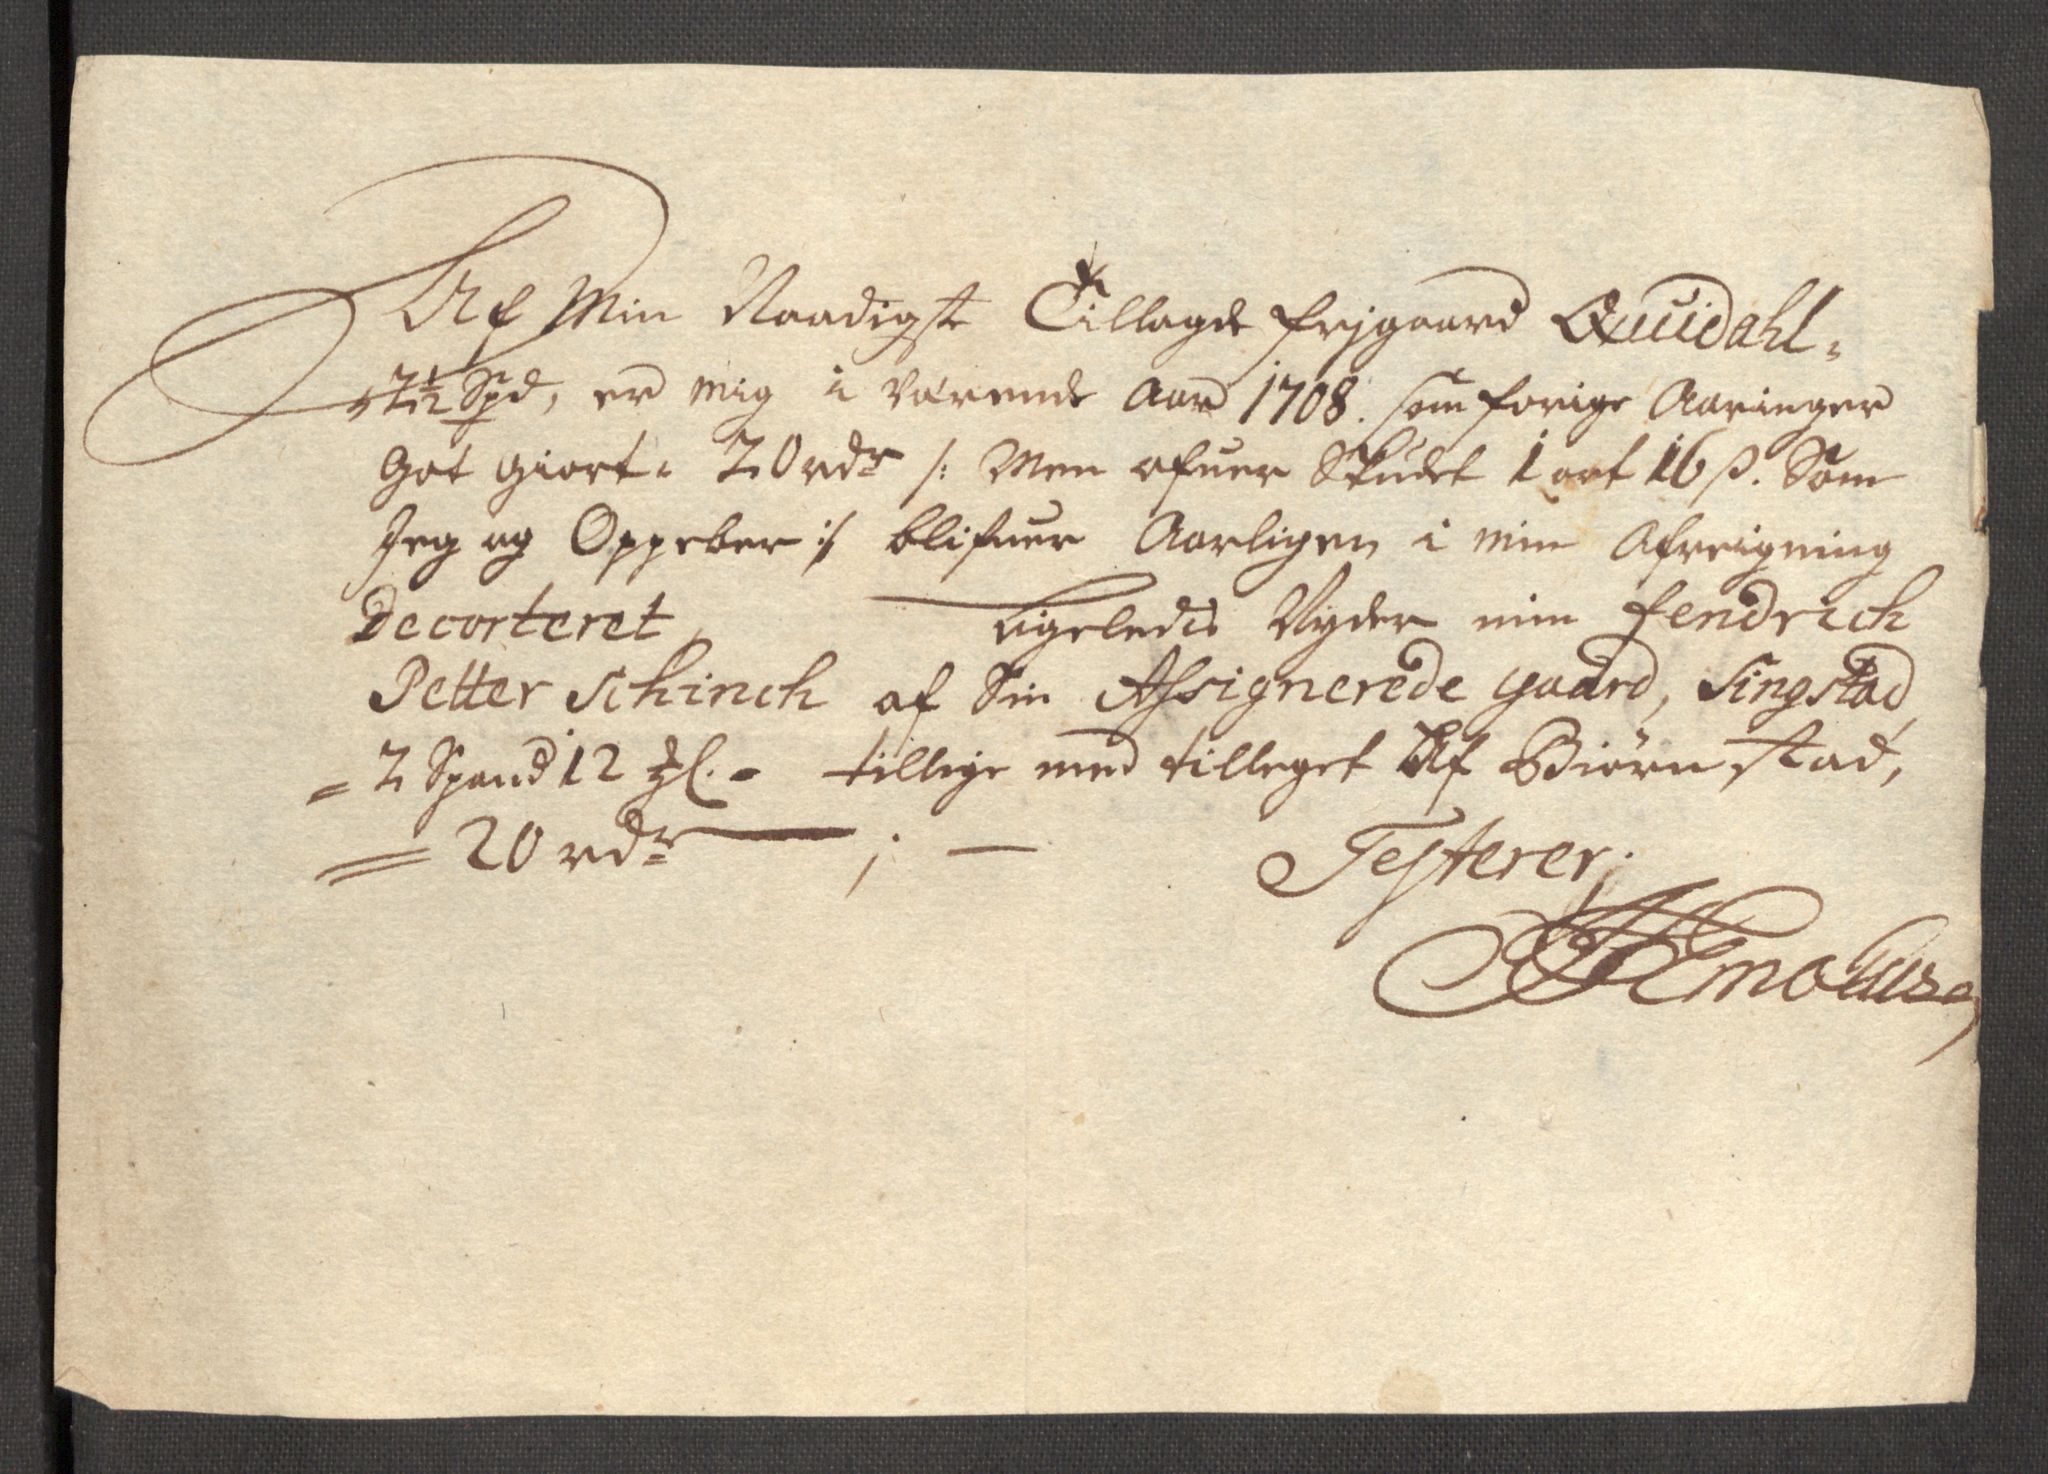 Af Min Naadigst Tillagde frjgaard Quidahl =
= 2 1/2 Spd, er mig i værende Aar 1708. som forige Aaringer
Got giort = 20 rdr /: Men ofuer Skudet 1 ort 16 β. Som
Jeg og Oppeber :/ blifuer Aarligen i min Afreigning
Decorteret, Ligeledis Nyder min fendrich
Petter Schinch af Sin Assignerede gaard, Singstad,
= 2 Spand 12 . = tillige med tilleget Af Biørnstad,
= 20 rdr ; —
Testerer;